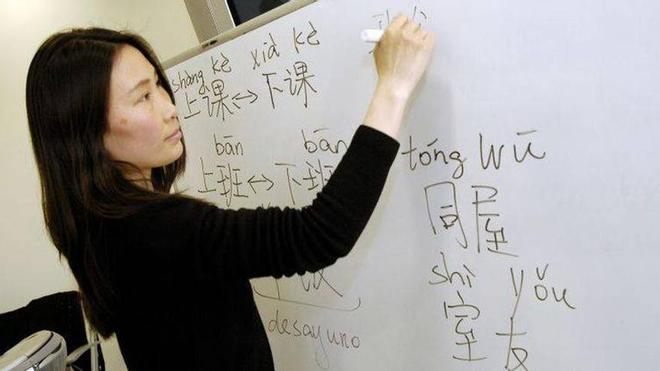 shàng kè xià kè
上课↔下课
bān bān
上班↔下班
desayuno
tóng wū
同屋
shì yǒu
室友